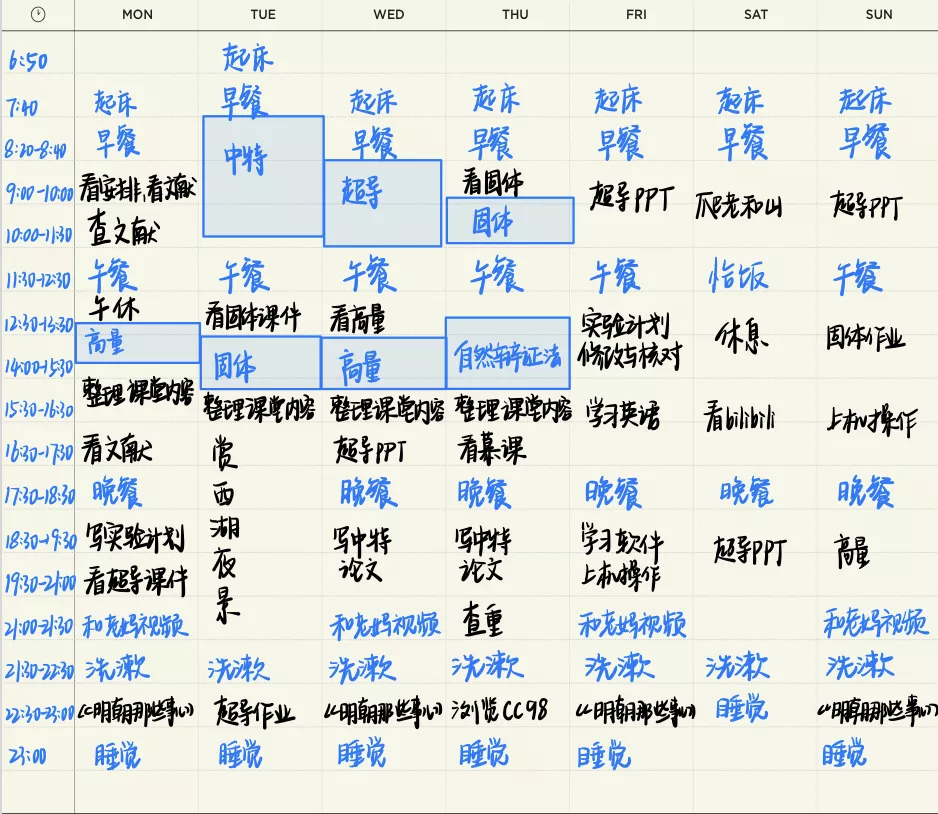 MON TUE WED THU FRI SAT SUN
6:50 起床
7:40 起床 早餐 起床 起床 起床 起床 起床
8:20-8:40 早餐 中特 早餐 早餐 早餐 早餐 早餐
9:00-10:00 看安排,看文献 超导 看固体 超导PPT 爬老和山 超导PPT
10:00-11:30 查文献 固体
11:30-12:30 午餐 午餐 午餐 午餐 午餐 恰饭 午餐
12:30-13:30 午休 看固体课件 看高量 实验计划 休息 固体作业
高量
14:00-15:30 固体 高量 自然辩证法 修改与核对
整理课堂内容
15:30-16:30 整理课堂内容 整理课堂内容 整理课堂内容 学习英语 看bilibili 上机操作
16:30-17:30 看文献 赏 超导PPT 看慕课
17:30-18:30 晚餐 西 晚餐 晚餐 晚餐 晚餐 晚餐
18:30-19:30 写实验计划 湖 写中特 写中特 学习软件 超导PPT 高量
19:30-21:00 看超导课件 夜 论文 论文 上机操作
21:00-21:30 和老妈视频 景 和老妈视频 查重 和老妈视频 和老妈视频
21:30-22:30 洗漱 洗漱 洗漱 洗漱 洗漱 洗漱 洗漱
22:30-23:00 《明朝那些事儿》 超导作业 《明朝那些事儿》 浏览CC98 《明朝那些事儿》 睡觉 《明朝那些事儿》
23:00 睡觉 睡觉 睡觉 睡觉 睡觉 睡觉